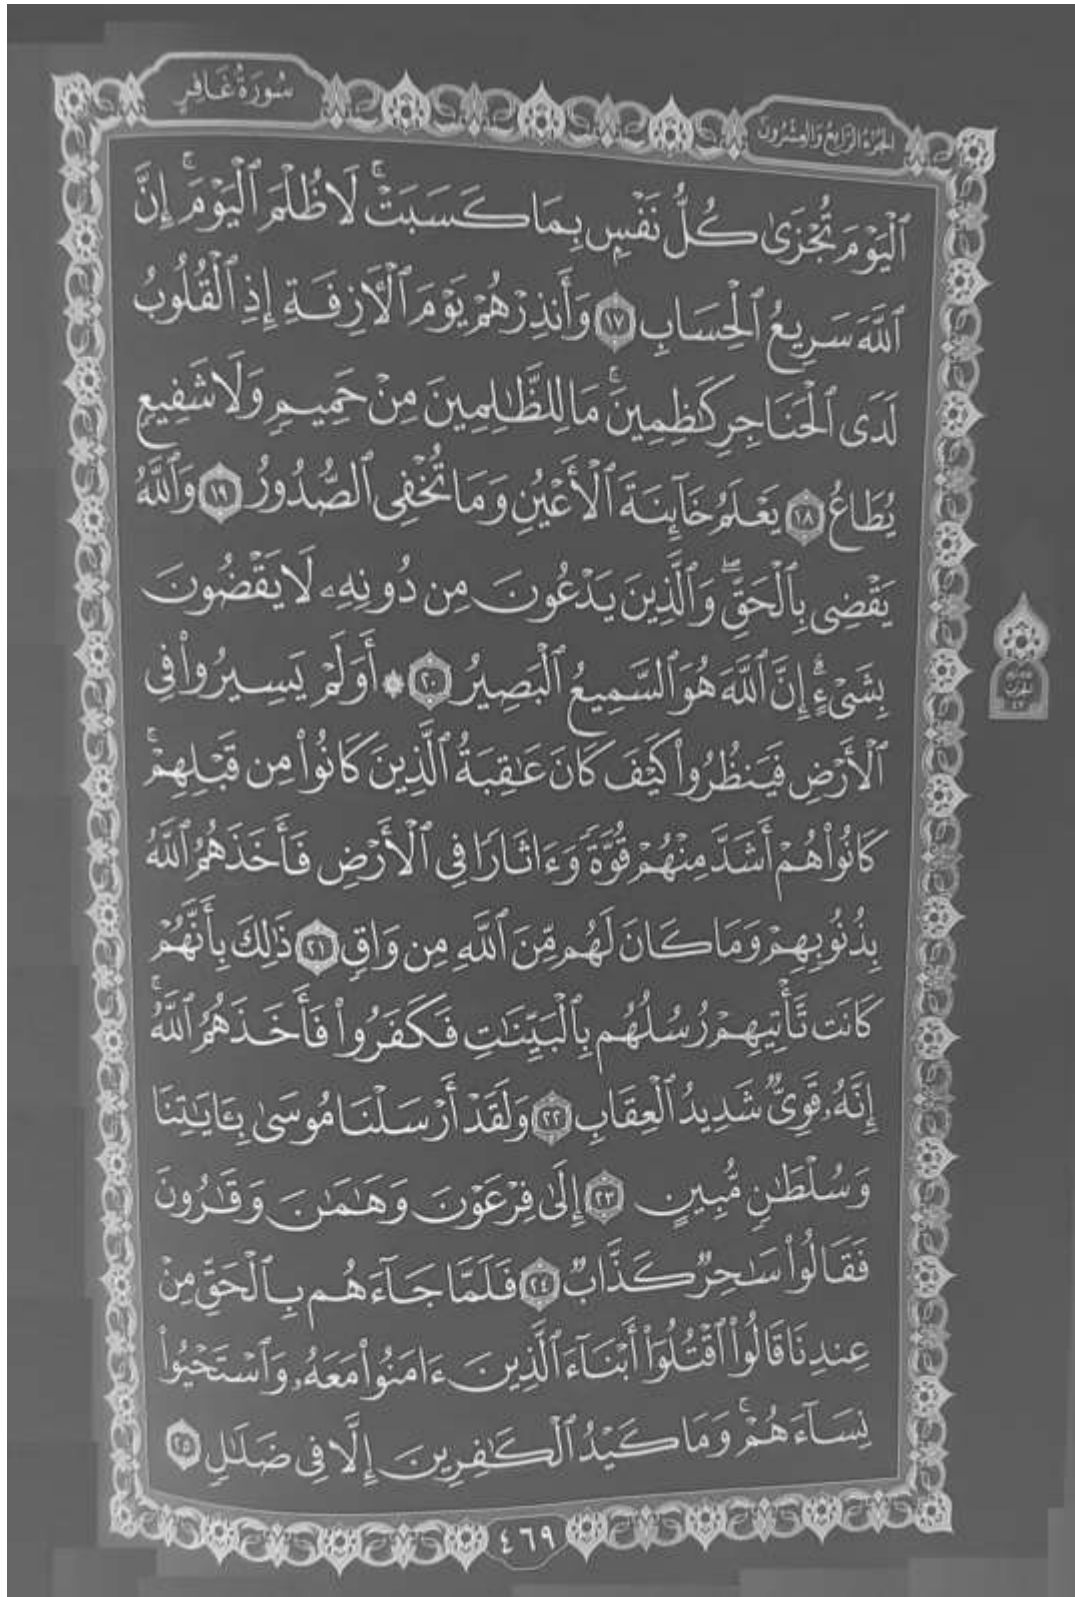 سُورَةُ غَافِرٍ
الجُزْءُ الرَّابِعُ وَالعِشْرُونَ
ٱلْيَوْمَ تُجْزَىٰ كُلُّ نَفْسٍۭ بِمَا كَسَبَتْۚ لَا ظُلْمَ ٱلْيَوْمَۚ إِنَّ
ٱللَّهَ سَرِيعُ ٱلْحِسَابِ ١٧ وَأَنذِرْهُمْ يَوْمَ ٱلْأَزِفَةِ إِذِ ٱلْقُلُوبُ
لَدَى ٱلْحَنَاجِرِ كَٰظِمِينَۚ مَا لِلظَّٰلِمِينَ مِنْ حَمِيمٍ وَلَا شَفِيعٍ
يُطَاعُ ١٨ يَعْلَمُ خَآئِنَةَ ٱلْأَعْيُنِ وَمَا تُخْفِى ٱلصُّدُورُ ١٩ وَٱللَّهُ
يَقْضِى بِٱلْحَقِّۖ وَٱلَّذِينَ يَدْعُونَ مِن دُونِهِۦ لَا يَقْضُونَ
بِشَىْءٍۗ إِنَّ ٱللَّهَ هُوَ ٱلسَّمِيعُ ٱلْبَصِيرُ ٢٠ ۞ أَوَلَمْ يَسِيرُوا۟ فِى
ٱلْأَرْضِ فَيَنظُرُوا۟ كَيْفَ كَانَ عَٰقِبَةُ ٱلَّذِينَ كَانُوا۟ مِن قَبْلِهِمْۚ
كَانُوا۟ هُمْ أَشَدَّ مِنْهُمْ قُوَّةً وَءَاثَارًا فِى ٱلْأَرْضِ فَأَخَذَهُمُ ٱللَّهُ
بِذُنُوبِهِمْ وَمَا كَانَ لَهُم مِّنَ ٱللَّهِ مِن وَاقٍ ٢١ ذَٰلِكَ بِأَنَّهُمْ
كَانَت تَّأْتِيهِمْ رُسُلُهُم بِٱلْبَيِّنَٰتِ فَكَفَرُوا۟ فَأَخَذَهُمُ ٱللَّهُۚ
إِنَّهُۥ قَوِىٌّ شَدِيدُ ٱلْعِقَابِ ٢٢ وَلَقَدْ أَرْسَلْنَا مُوسَىٰ بِـَٔايَٰتِنَا
وَسُلْطَٰنٍ مُّبِينٍ ٢٣ إِلَىٰ فِرْعَوْنَ وَهَٰمَٰنَ وَقَٰرُونَ
فَقَالُوا۟ سَٰحِرٌ كَذَّابٌ ٢٤ فَلَمَّا جَآءَهُم بِٱلْحَقِّ مِنْ
عِندِنَا قَالُوا۟ ٱقْتُلُوٓا۟ أَبْنَآءَ ٱلَّذِينَ ءَامَنُوا۟ مَعَهُۥ وَٱسْتَحْيُوا۟
نِسَآءَهُمْۚ وَمَا كَيْدُ ٱلْكَٰفِرِينَ إِلَّا فِى ضَلَٰلٍ ٢٥
٤٦٩